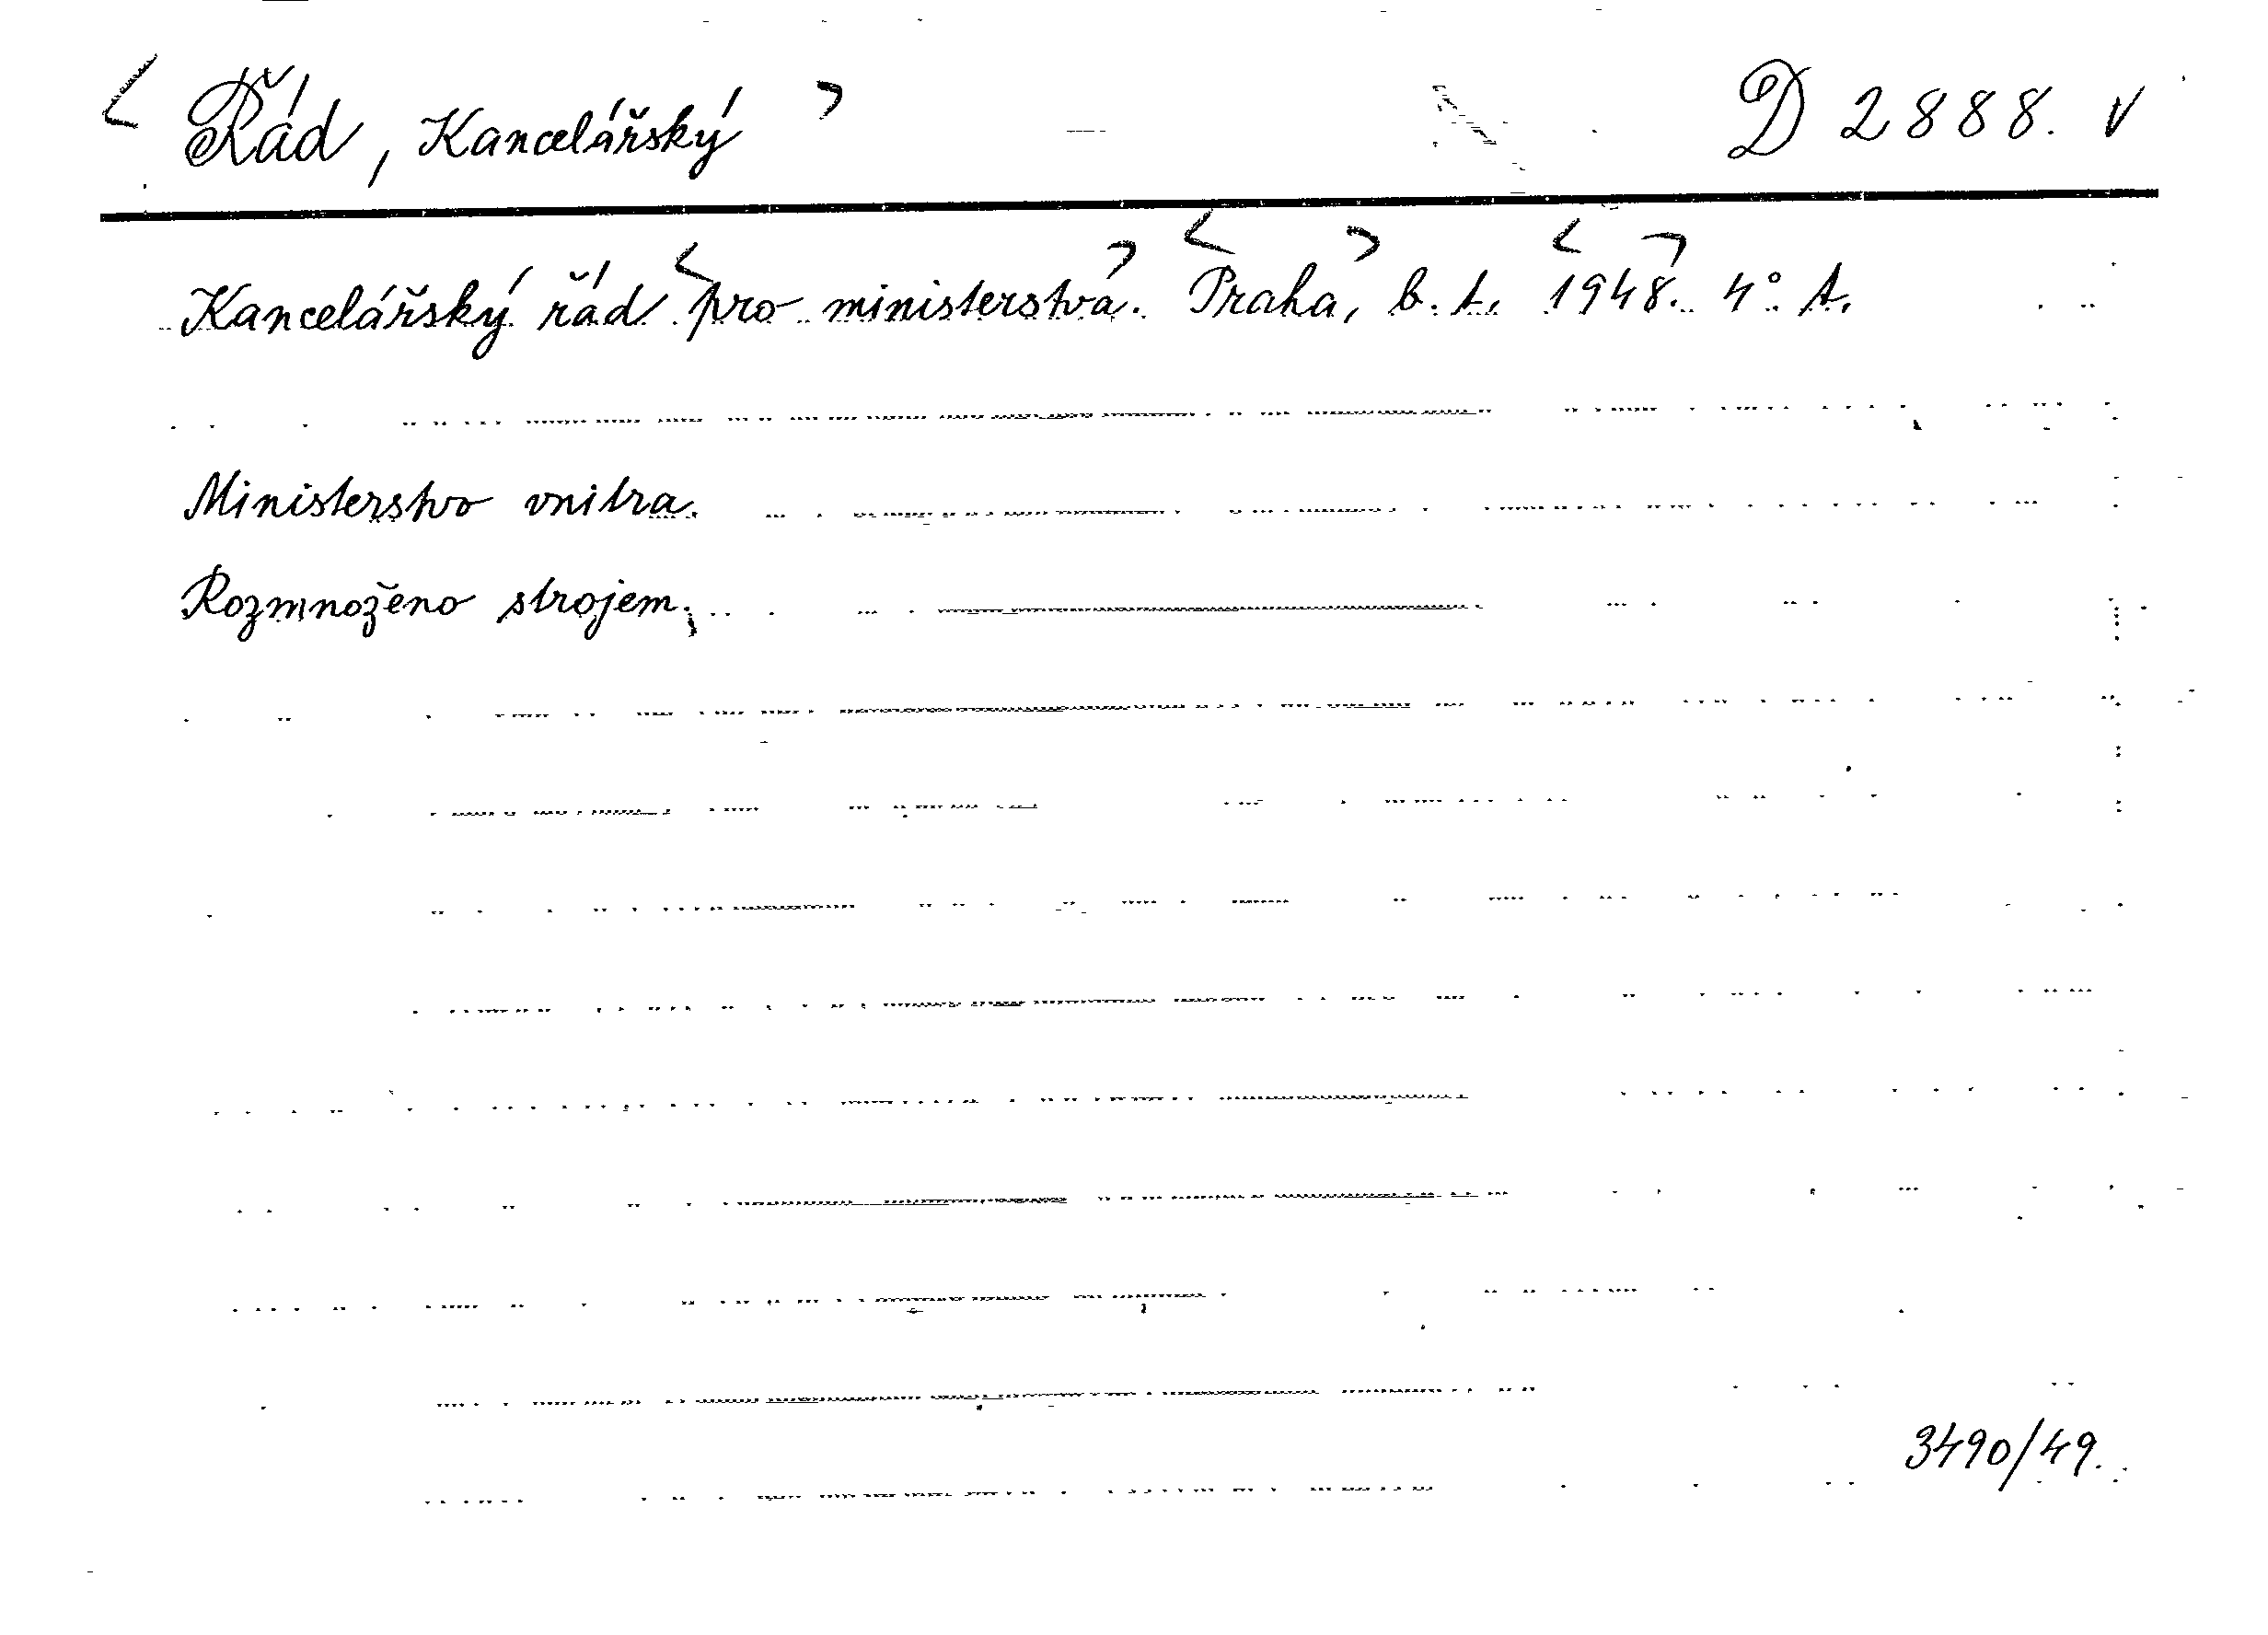 < Řád, Kancelářský > D 2888. v
Kancelářský řád <pro ministerstva>. <Praha>, b. t. <1948>. 4°. t.
Ministerstvo vnitra.
Rozmnoženo strojem.
3490/49.